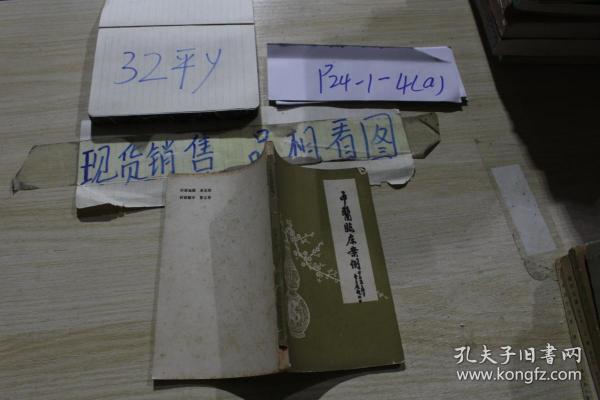 32平y
P24-1-4(a)
现货销售 品相看图
中醫臨床案例
孔夫子旧书网
www.kongfz.com